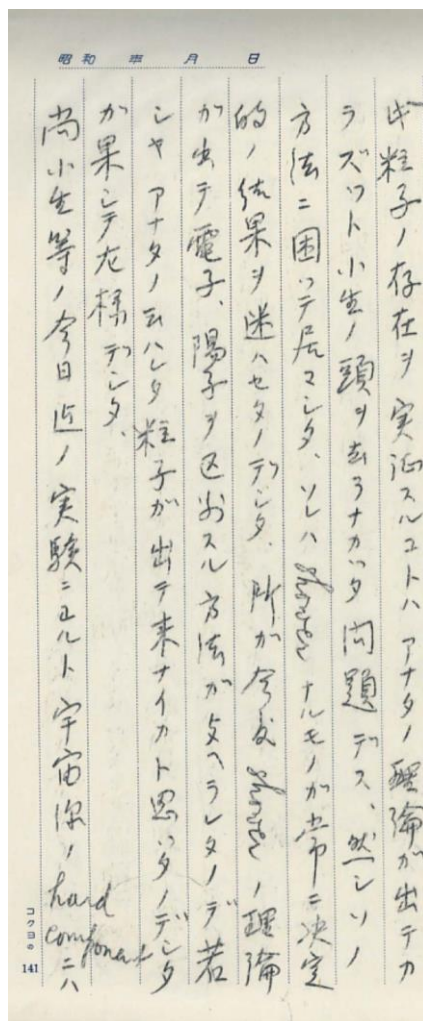 昭和 年 月 日
此粒子ノ存在ヲ実証スルコトハ アナタノ理論が出テカ
ラズット小生ノ頭ヲ去ラナカッタ問題デス、然シソノ
方法ニ困ッテ居マシタ、ソレハ shower ナルモノガ常ニ決定
的ノ結果ヲ迷ハセタノデシタ、所が今度 shower ノ理論
が出テ電子、陽子ヲ区別スル方法が与ヘラレタノデ若
シヤ アナタノ云ハレタ粒子が出テ来ナイカト思ッタノデシタ
が果シテ左様デシタ、
尚小生等ノ今日迄ノ実験ニヨルト宇宙線ノ hard component ニハ
コクヨの 141